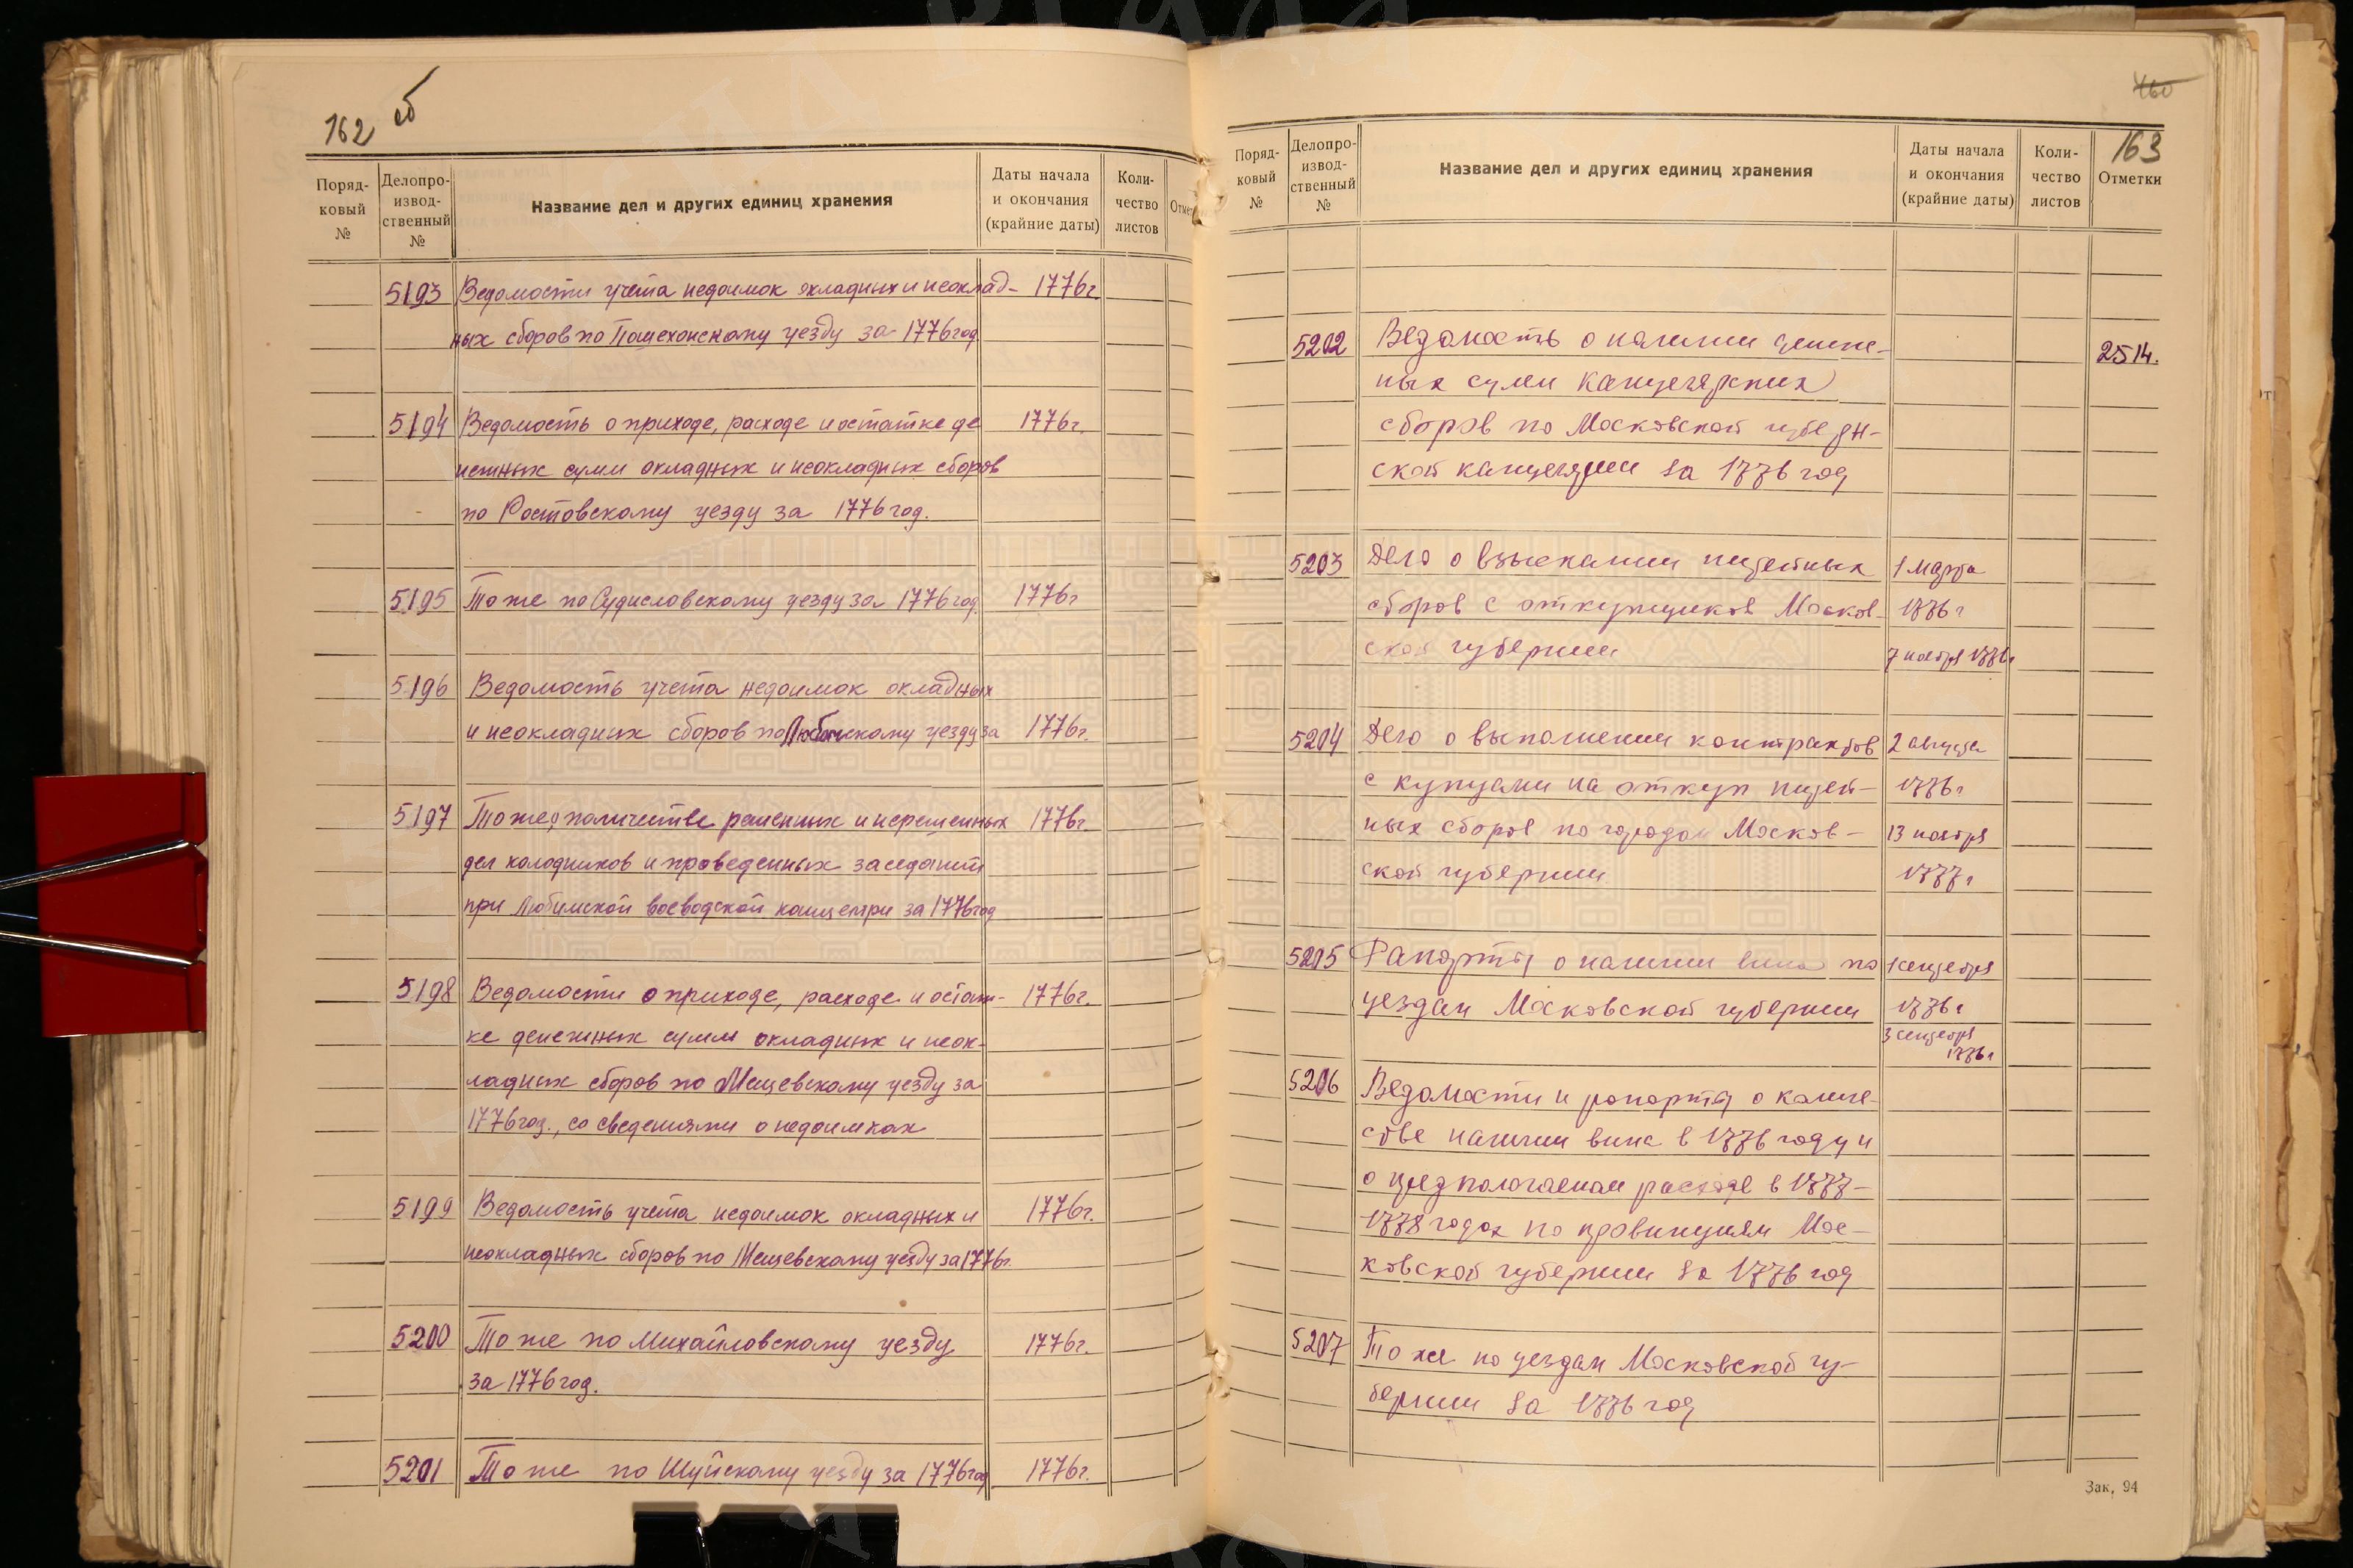 162 об
Поряд-
ковый
№
Делопро-
извод-
ственный
№
Название дел и других единиц хранения
Даты начала
и окончания
(крайние даты)
Коли-
чество
листов
Отмет
5193 Ведомости учета недоимок окладных и неоклад- 1776г.
ных сборов по Пошехонскому уезду за 1776 год
5194 Ведомость о приходе, расходе и остатке де 1776г.
нежных сумм окладных и неокладных сборов
по Ростовскому уезду за 1776 год.
5195 То же по Судисловскому уезду за 1776 год. 1776г
5196 Ведомость учета недоимок окладных
и неокладных сборов по Любимскому уезду за 1776г.
5197 То же о количестве решенных и нерешенных 1776г.
дел колодников и проведенных заседаний
при Любимской воеводской канцелярии за 1776 год
5198 Ведомости о приходе, расходе и остат- 1776г.
ке денежных сумм окладных и неок-
ладных сборов по Мещевскому уезду за
1776 год., со сведениями о недоимках
5199 Ведомость учета недоимок окладных и 1776г.
неокладных сборов по Мещевскому уезду за 1776г.
5200 То же по Михайловскому уезду 1776г.
за 1776 год.
5201 То же по Шуйскому уезду за 1776 год 1776г.
460
163
Поряд-
ковый
№
Делопро-
извод-
ственный
№
Название дел и других единиц хранения
Даты начала
и окончания
(крайние даты)
Коли-
чество
листов
Отметки
5202 Ведомость о наличии денеж- 2514.
ных сумм канцелярских
сборов по Московской губерн-
ской канцелярии за 1776 год
5203 Дело о взыскании питейных 1 марта
сборов с откупщиков Москов- 1776 г
ской губернии 7 ноября 1776г
5204 Дело о выполнении контрактов 2 августа
с купцами на откуп питей- 1776 г
ных сборов по городам Москов- 13 ноября
ской губернии 1777 г
5205 Рапорты о наличии вина по 1 сентября
уездам Московской губернии 1776 г
3 сентября
1776 г
5206 Ведомости и рапорты о количе-
стве наличии вина в 1776 году и
о предполагаемом расходе в 1777-
1778 годах по провинциям Мос-
ковской губернии за 1776 год
5207 То же по уездам Московской гу-
бернии за 1776 год
Зак. 94